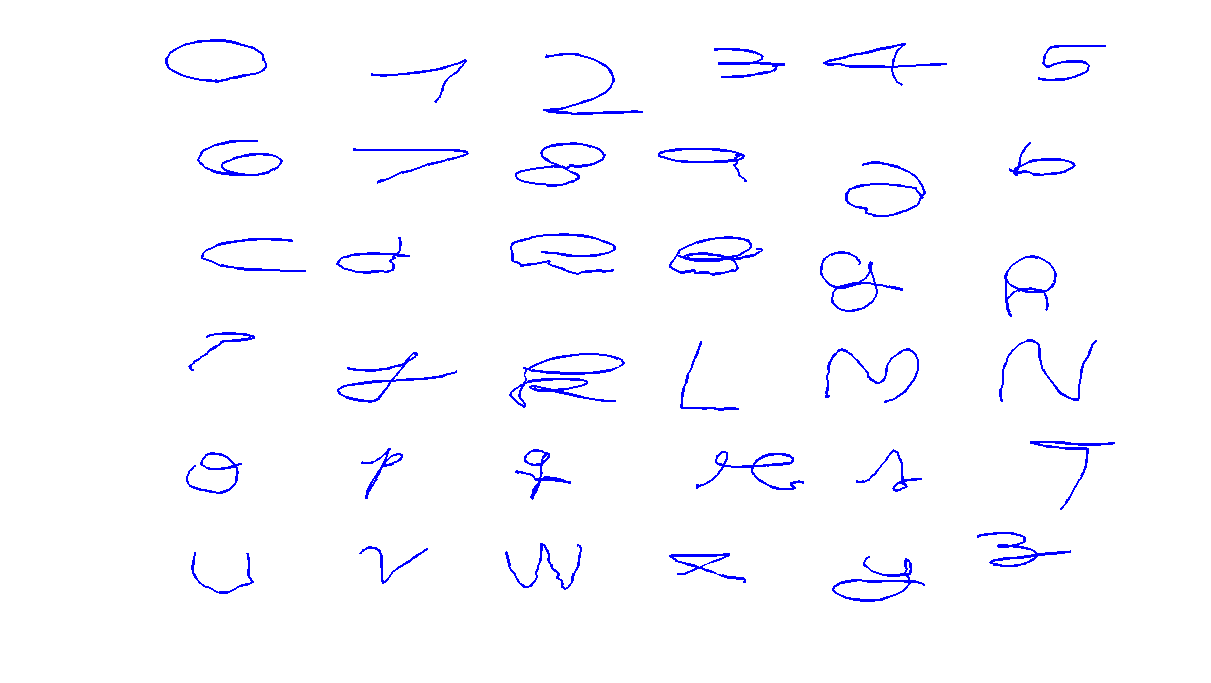 0 1 2 3 4 5
6 7 8 9 a b
c d e g
L M N
o p q r s T
u v w x y z